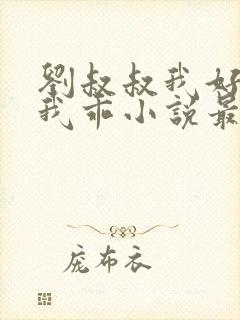 劉叔叔我好
我乖小說最
庞布衣